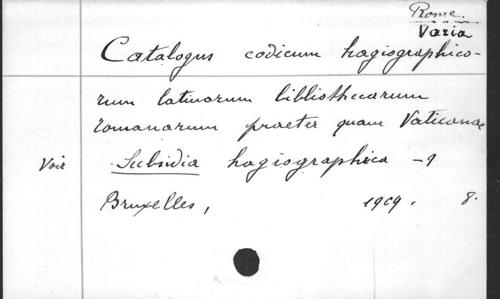 Rome.
Varia
Catalogus codicum hagiographico-
rum latinorum bibliothecarum
romanarum praeter quam Vaticanae
Voir Subsidia hagiographica - 9
Bruxelles, 1909. 8.